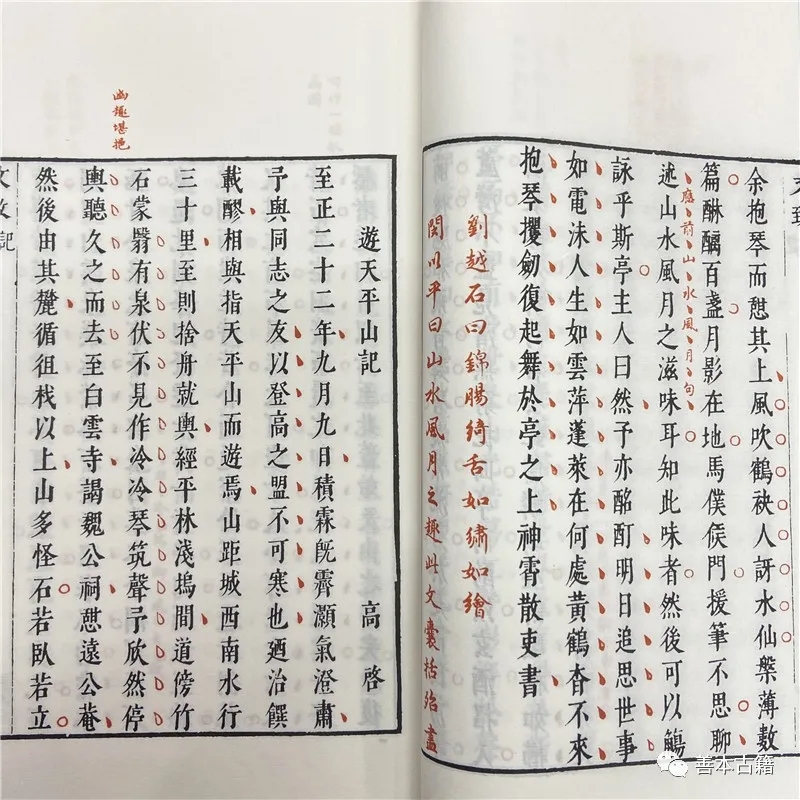 余抱琴而憇其上風吹鶴袂人訝水仙槳薄數
篇醂醨百盞月影在地馬僕候門援筆不思聊
應前山水風月句
述山水風月之滋味耳知此味者然後可以觴
詠乎斯亭主人曰然予亦酩酊明日追思世事
如電沫人生如雲萍蓬萊在何處黃鶴杳不來
抱琴攫劒復起舞於亭之上神霄散吏書
劉越石曰錦腸綺舌如繡如繪
閔以平曰山水風月之趣此文囊括殆盡
遊天平山記 高啓
至正二十二年九月九日積霖旣霽灝氣澄肅
予與同志之友以登高之盟不可寒也廼治饌
載醪相與指天平山而遊焉山距城西南水行
三十里至則捨舟就輿經平林淺塢間道傍竹
幽趣堪挹
石蒙翳有泉伏不見作泠泠琴筑聲予欣然停
輿聽久之而去至白雲寺謁魏公祠憇遠公菴
然後由其麓循徂栈以上山多怪石若臥若立
文致 記
善本古籍